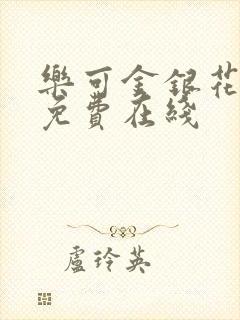 樂可金銀花
免費在綫
盧玲英